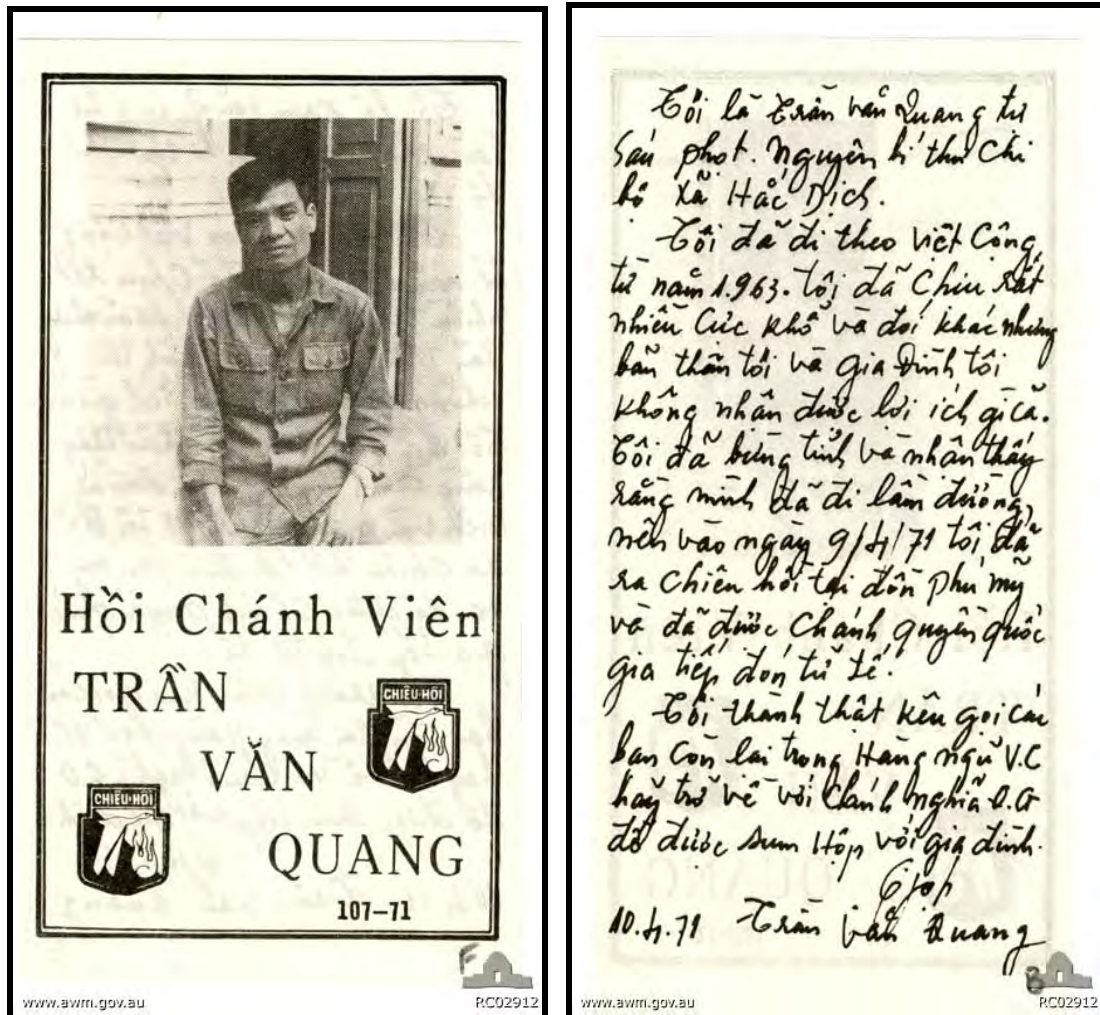 Hồi Chánh Viên
TRẦN
CHIÊU-HỒI
VĂN
CHIÊU-HỒI
QUANG
107-71
F
www.awm.gov.au
RC02912
Tôi là Trần văn Quang tư
Sáu phot. Nguyên bí thư Chi
bộ xã Hắc Dịch.
Tôi đã đi theo Việt Cộng
từ năm 1.963. tôi đã Chịu rất
nhiều Cực khổ và đói khác nhưng
bản thân tôi và gia Đình tôi
không nhận được lợi ích gì cả.
Tôi đã bừng tỉnh và nhận thấy
rằng mình đã đi lầm đường,
nên vào ngày 9/4/71 tôi đã
ra chiêu hồi tại đồn phú mỹ
và đã được Chánh quyền quốc
gia tiếp đón tử tế.
Tôi thành thật kêu gọi các
bạn Còn lại trong Hàng ngũ V.C
hãy trở về với Chánh nghĩa Q.G
để được sum Hộp với gia đình.
10.4.71 Trần văn Quang
B
www.awm.gov.au
RC02912